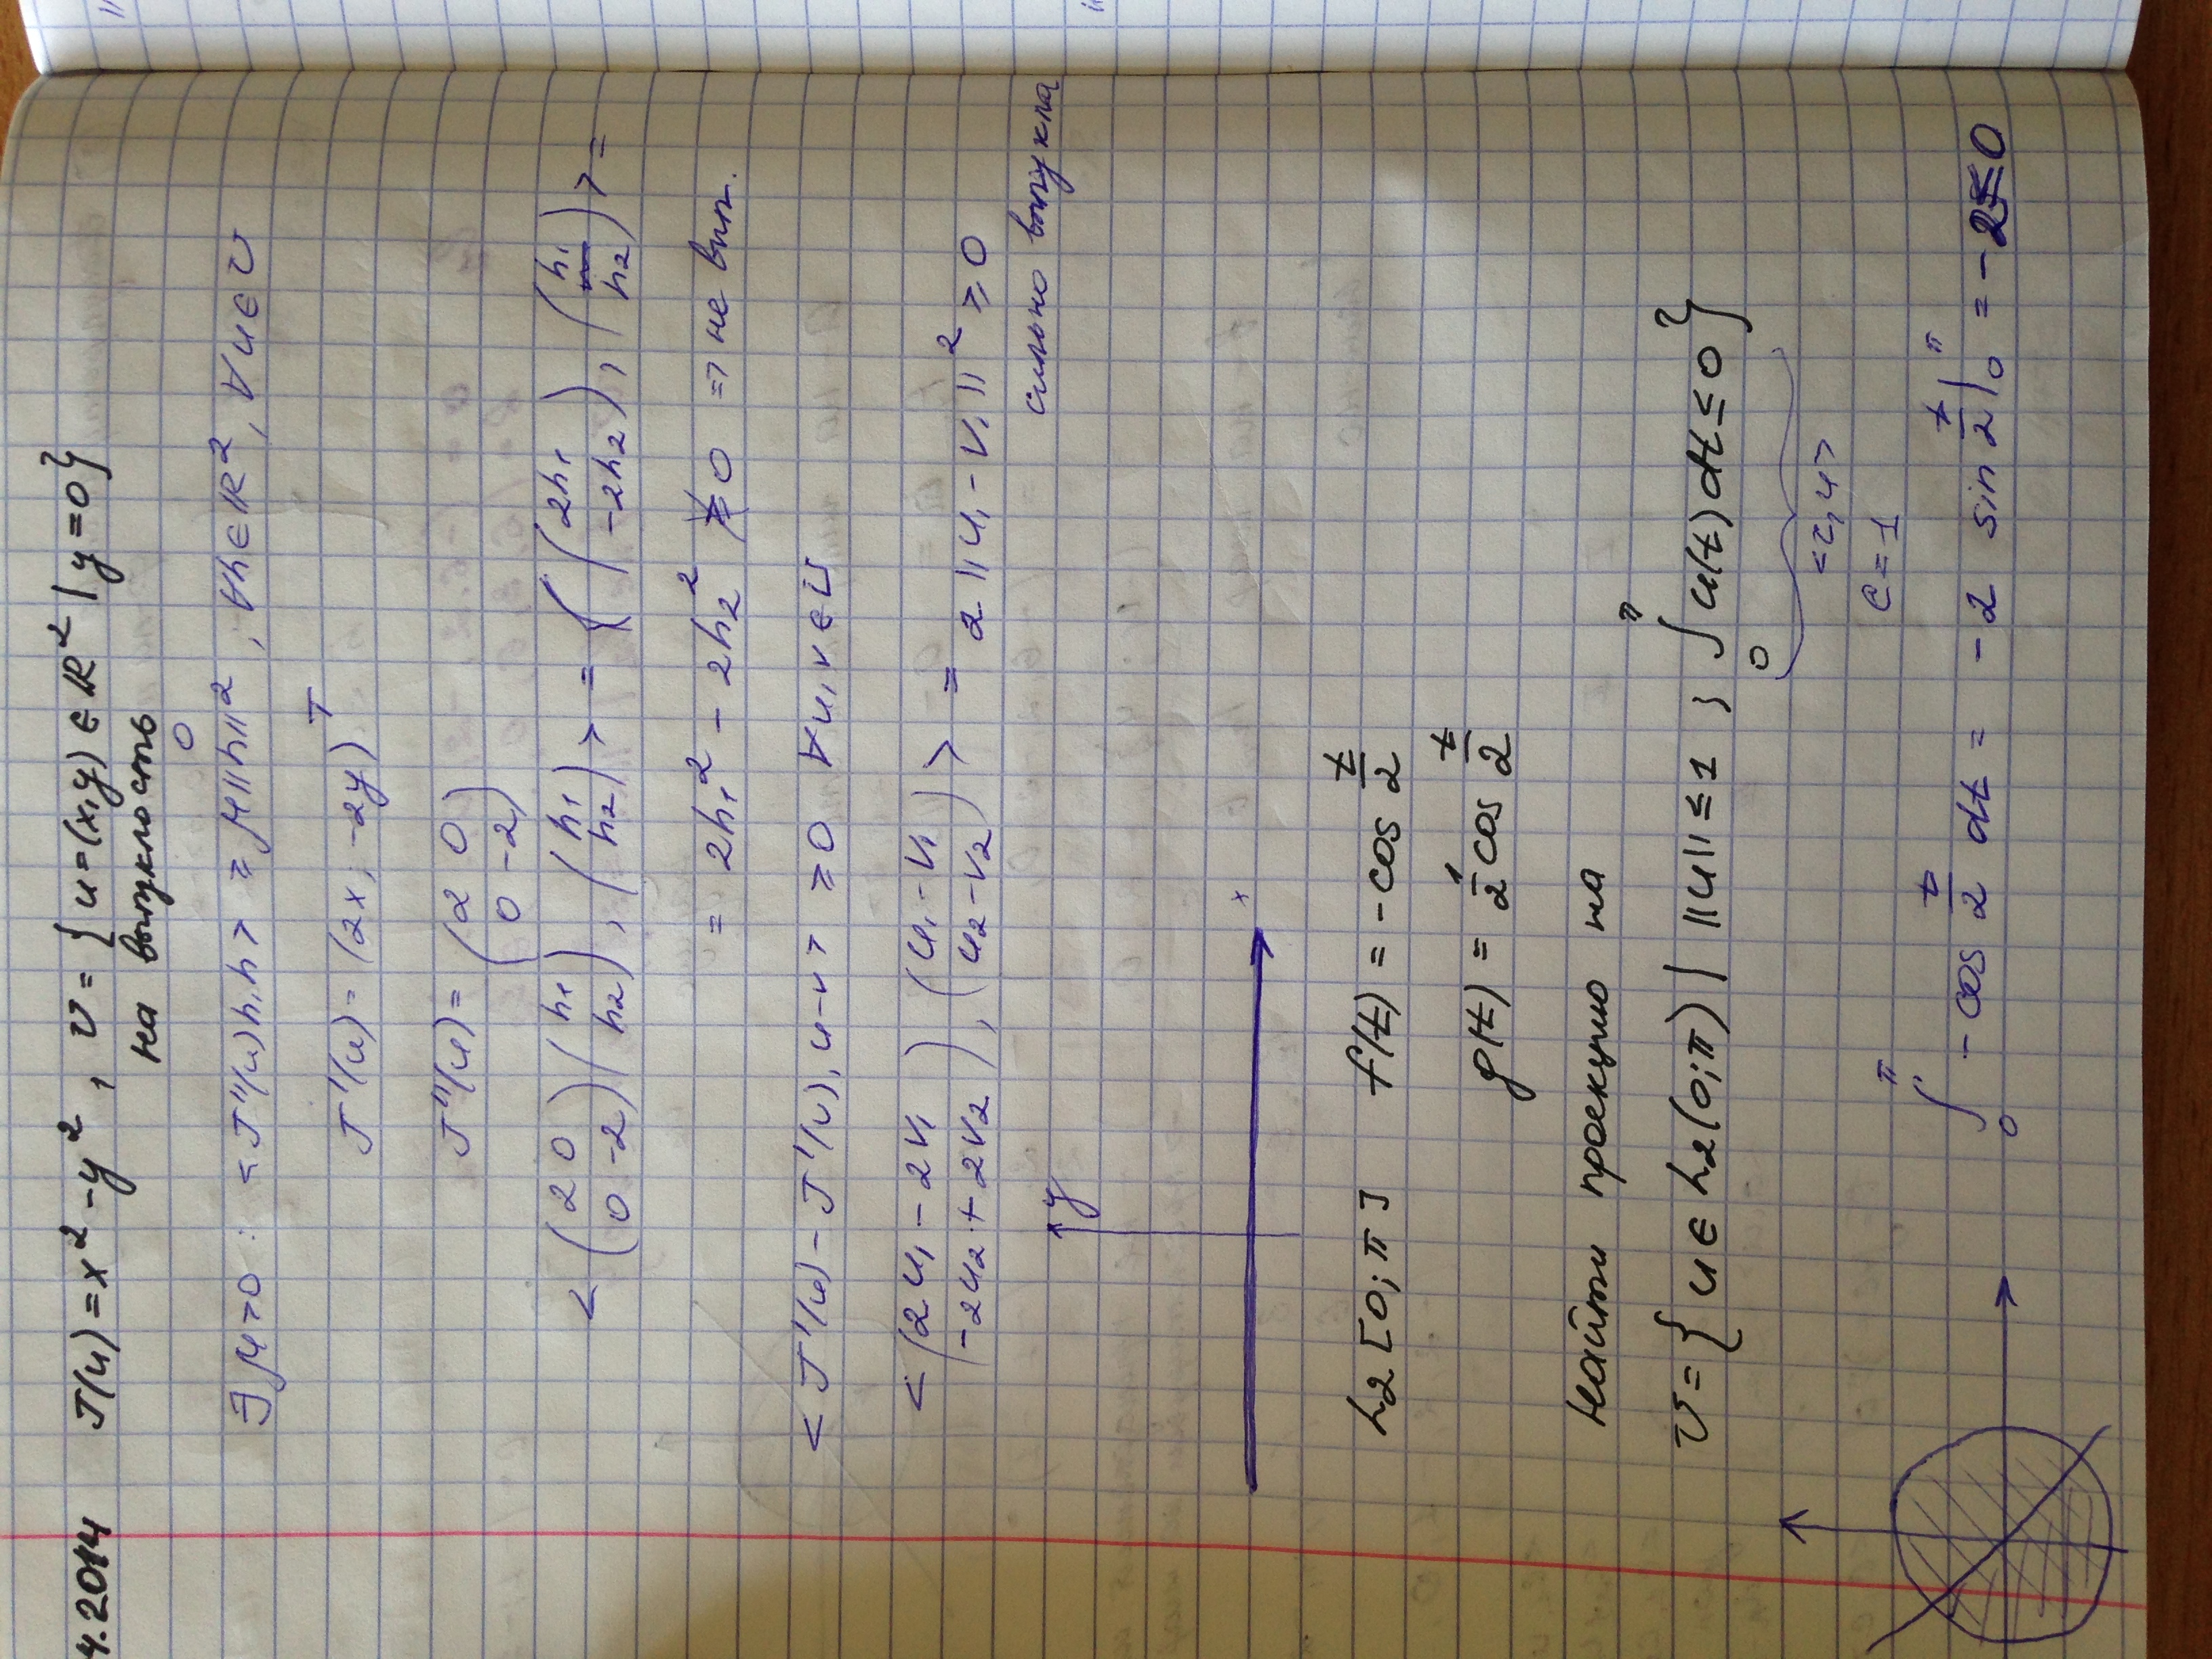 4.2014 J(u)=x²-y², U={u=(x,y)∈ℝ² | y=0}
на выпуклость
0
∃μ>0 : <J''(u)h,h> ≥ μ||h||², ∀h∈ℝ², ∀u∈U
J'(u)=(2x; -2y)ᵀ
J''(u)=(2 0
0 -2)
<(2 0
0 -2)(h₁
h₂), (h₁
h₂)> = ((2h₁
-2h₂), (h₁
h₂)> =
= 2h₁² - 2h₂² ≱ 0 => не вып.
<J'(u) - J'(v), u-v> ≥ 0 ∀u,v∈U
<(2u₁-2v₁
-2u₂+2v₂), (u₁-v₁
u₂-v₂)> = 2||u₁-v₁||² ≥ 0
сильно выпукла
y
x
L₂[0;π] f(t)=-cos t/2
g(t)=1/2 cos t/2
Найти проекцию на
U={u∈L₂(0;π) | ||u||≤1, ∫₀^π u(t)dt≤0}
<c,u>
c=1
∫₀^π -cos t/2 dt = -2 sin t/2 |₀^π = -2≤0